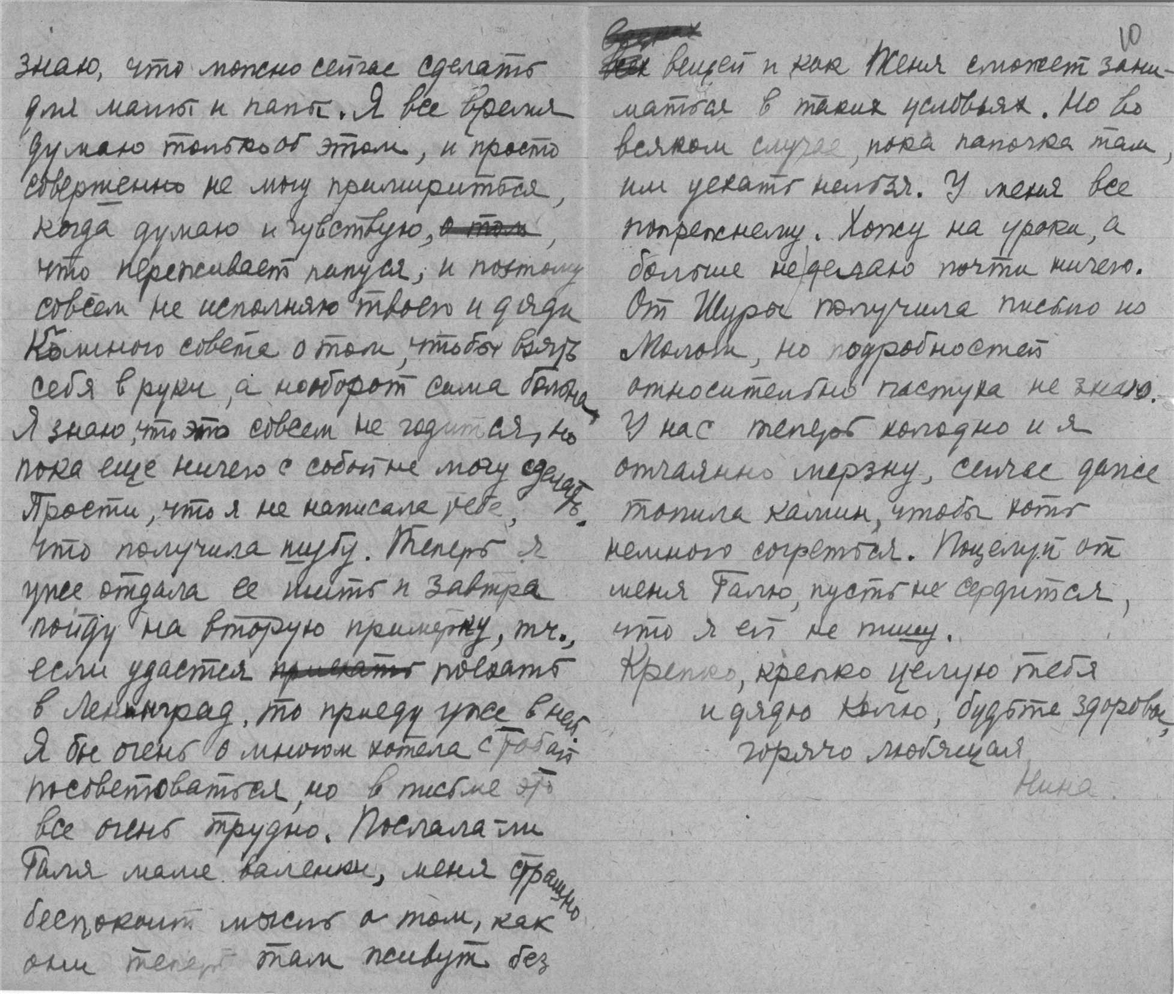 знаю, что можно сейчас сделать
для мамы и папы. Я все время
думаю только об этом, и просто
совершенно не могу примириться,
когда думаю и чувствую, о том,
что переживает папуся, и поэтому
совсем не исполняю твоего и дяди
Колиного совета о том, чтобы взять
себя в руки, а наоборот сама больна
Я знаю, что это совсем не годится, но
пока еще ничего с собой не могу сделать.
Прости, что я не написала тебе,
что получила шубу. Теперь я
уже отдала ее шить и завтра
пойду на вторую примерку, т.ч.,
если удастся приехать поехать
в Ленинград, то приеду уже в ней.
Я бы очень о многом хотела с тобой
посоветоваться, но в письме это
все очень трудно. Послала-ли
Галя маме валенки, меня страшно
беспокоит мысль о том, как
они теперь там живут без
10
вещей и как Женя сможет зани-
маться в таких условьях. Но во
всяком случае, пока папочка там,
им уехать нельзя. У меня все
попрежнему. Хожу на уроки, а
больше не делаю почти ничего.
От Шуры получила письмо из
Мологи, но подробностей
относительно пастуха не знаю.
У нас теперь холодно и я
отчаянно мерзну, сейчас даже
топила камин, чтобы хоть
немного согреться. Поцелуй от
меня Галю, пусть не сердится,
что я ей не пишу.
Крепко, крепко целую тебя
и дядю Колю, будьте здоровы,
горячо любящая
Нина.